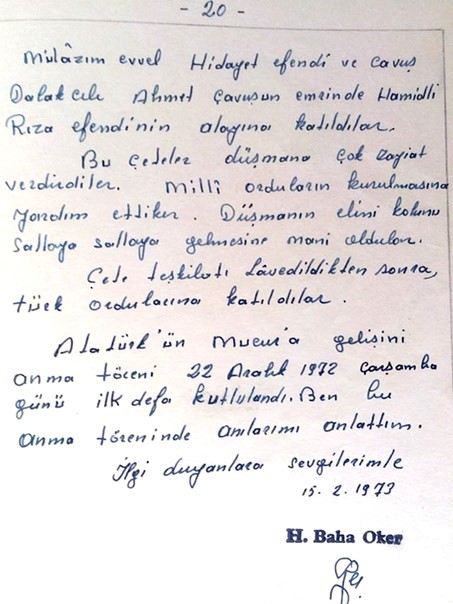 - 20 -
Mülâzım evvel Hidayet efendi ve çavuş
Dalakcılı Ahmet Çavuşun emrinde Hamidli
Rıza efendi'nin alayına katıldılar.
Bu Çeteler düşmana çok zayiat
verdirdiler. Millî orduların kurulmasına
yardım ettiler. Düşmanın elini kolunu
sallaya sallaya gelmesine mani oldular.
Çete teşkilatı lâvedildikten sonra,
türk ordularına katıldılar.
Atatürk'ün Mucur'a gelişini
anma töreni 22 Aralık 1972 Çarşamba
günü ilk defa kutlulandı. Ben bu
anma töreninde anılarımı anlattım.
İlgi duyanlara sevgilerimle
15. 2. 1973
H. Baha Oker